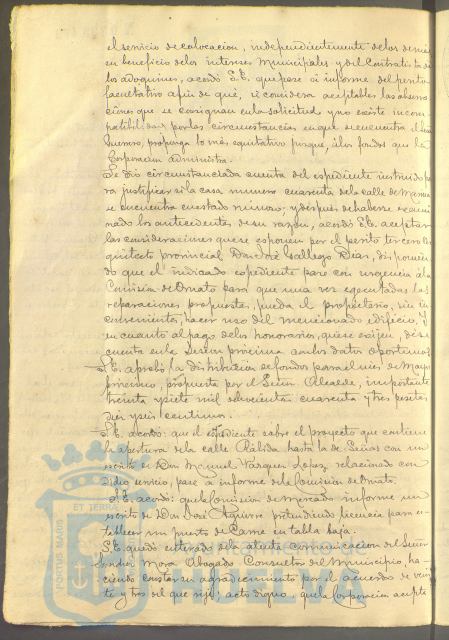 el servicio de colocacion, independientemente de los demás
en beneficio de los intereses Municipales y del Contratista de
los adoquines, acordó S.E. que pase á informe del perito
facultativo afin de que, si considera aceptables las observa
ciones que se consignan en la solicitud y no existe incom
patibilidad por las circunstancias en que se encuentra el Señor
Guerrero, proponga lo más equitativo para los fondos que la
Corporacion administra.
Se dió circunstanciada cuenta del expediente instruido pa
ra justificar si la casa numero cuarenta de la calle de
se encuentra en estado ruinoso; y despues de haberse exami
nado los antecedentes de su razón, acordó S.E. aceptar
las consideraciones que se exponen por el perito tercero Ar
quitecto provincial Don José Gallego Diaz, disponien
do que el indicado expediente pase con urgencia á la
Comision de Ornato para que una vez ejecutadas las
reparaciones propuestas, pueda el propietario, sin in
conveniente, hacer uso del mencionado edificio. Y
en cuanto al pago de los honorarios, que se exijen, dése
cuenta en la sesion próxima con los datos oportunos
S.E. aprobó la distribucion de fondos para el mes de Mayo
próximo, propuesta por el Señor Alcalde, importante
treinta y siete mil setecientas cuarenta y tres pesetas
diez y seis centimos.
S.E. acordó: que el expediente sobre el proyecto que contiene
la abertura de la calle Rábida hasta la de con un
escrito de Don Manuel Vazquez Lopez relacionado con
dicho servicio, pase á informe de la Comision de Ornato.
S.E. acordó: que la Comision de Mercado informe un
escrito de Don José Aguirre pretendiendo licencia para es
tablecer un puesto de Carne en tabla baja.
S.E. quedó enterado de la atenta comunicacion del Señor
Mora Abogado Consultor del Municipio, ha
ciendo constar su agradecimiento por el acuerdo de vein
te y tres del que rije; acto digno, que la Corporacion acepta
ET TERRÆ
PORTUS MARIS
Ayuntamiento de
HUELVA